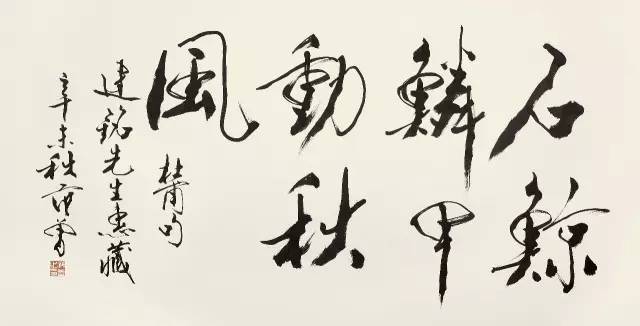 石鯨
鱗甲
動秋
風
杜甫句
建銘先生惠藏
辛未秋范曾